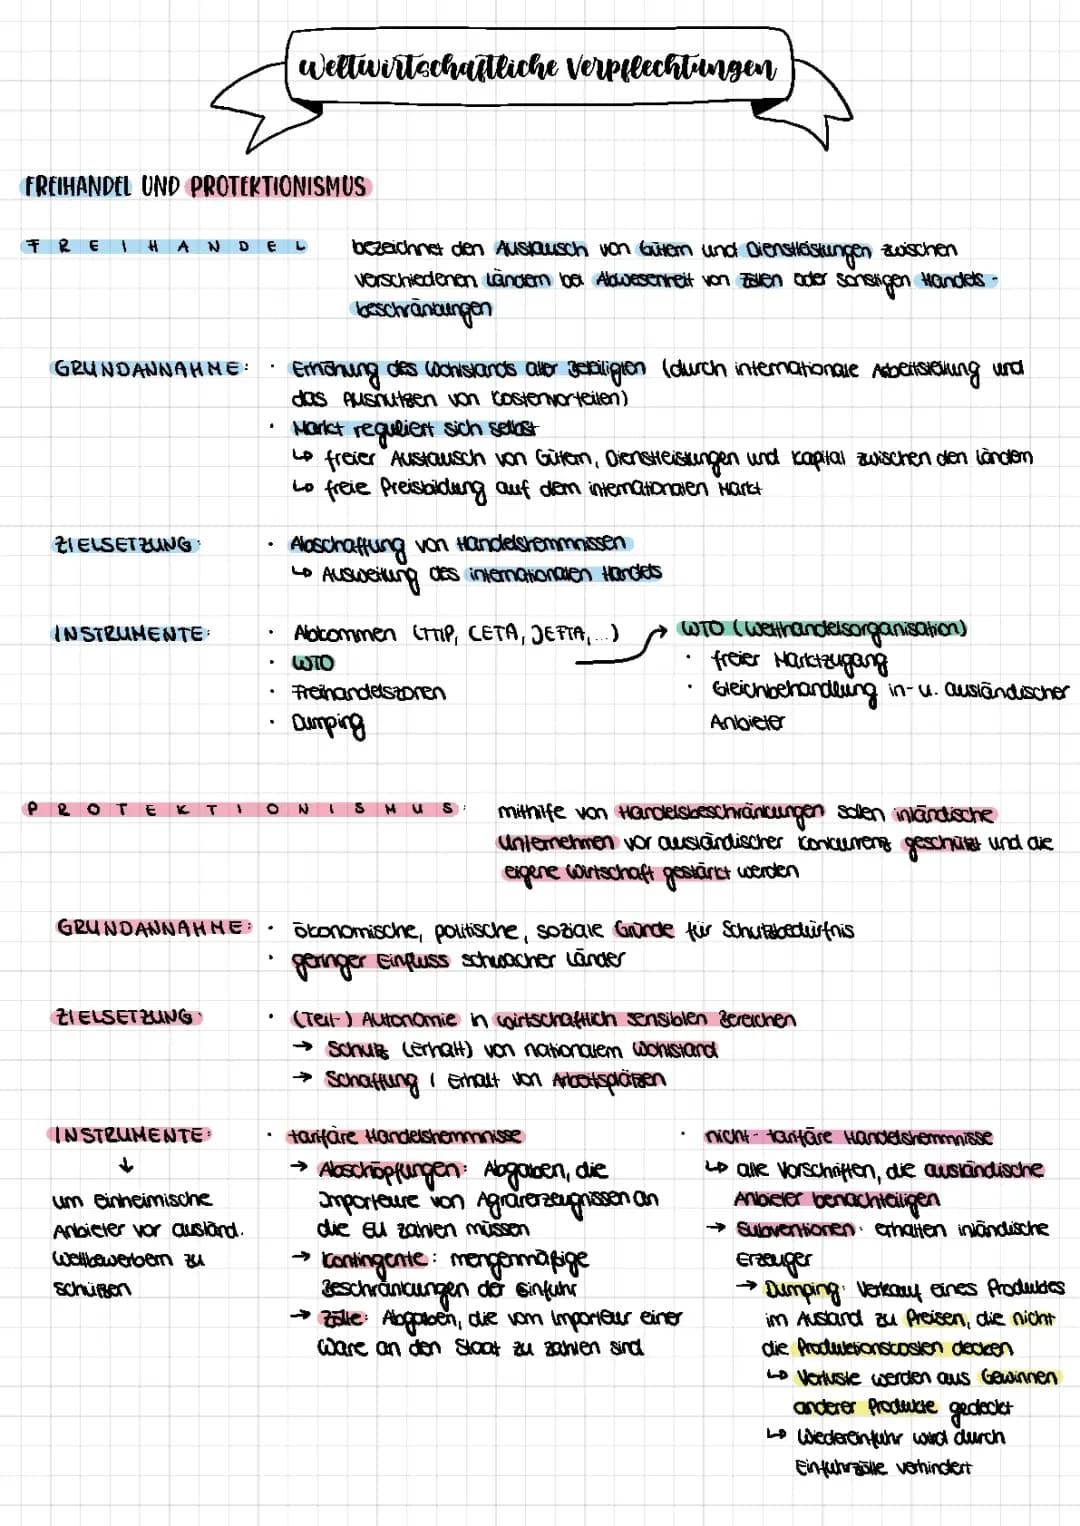 Weltwirtschaftliche Verpflechtungen
FREIHANDEL UND PROTEKTIONISMUS
FREIHANDEL
bezeichnet den Austausch von Gütern und Dienstleistungen zwischen
verschiedenen Ländern bei Abwesenheit von Zöllen oder sonstigen Handels-
beschränkungen
GRUNDANNAHME:
· Erhöhung des Wohlstands aller Beteiligten (durch internationale Arbeitsteilung und
das Ausnutzen von Kostenvorteilen)
· Markt reguliert sich selbst
↳ freier Austausch von Gütern, Dienstleistungen und Kapital zwischen den Ländern
↳ freie Preisbildung auf dem internationalen Markt
ZIELSETZUNG:
· Abschaffung von Handelshemmnissen
↳ Ausweitung des internationalen Handels
INSTRUMENTE:
· Abkommen (TTIP, CETA, JEFTA, ...)
· WTO
· Freihandelszonen
· Dumping
WTO (Welthandelsorganisation)
· freier Marktzugang
· Gleichbehandlung in- u. ausländischer
Anbieter
PROTEKTIONISMUS:
mithilfe von Handelsbeschränkungen sollen inländische
Unternehmen vor ausländischer Konkurrenz geschützt und die
eigene Wirtschaft gestärkt werden
GRUNDANNAHME:
· ökonomische, politische, soziale Gründe für Schutzbedürfnis
· geringer Einfluss schwacher Länder
ZIELSETZUNG:
· (Teil-) Autonomie in wirtschaftlich sensiblen Bereichen
→ Schutz (Erhalt) von nationalem Wohlstand
→ Schaffung / Erhalt von Arbeitsplätzen
INSTRUMENTE:
↓
um einheimische
Anbieter vor ausländ.
Wettbewerbern zu
schützen
· tarifäre Handelshemmnisse
→ Abschöpfungen: Abgaben, die
Importeure von Agrarerzeugnissen an
die EU zahlen müssen
→ Kontingente: mengenmäßige
Beschränkungen der Einfuhr
→ Zölle: Abgaben, die vom Importeur einer
Ware an den Staat zu zahlen sind
· nicht-tarifäre Handelshemmnisse
↳ alle Vorschriften, die ausländische
Anbieter benachteiligen
→ Subventionen: erhalten inländische
Erzeuger
→ Dumping: Verkauf eines Produktes
im Ausland zu Preisen, die nicht
die Produktionskosten decken
↳ Verluste werden aus Gewinnen
anderer Produkte gedeckt
↳ Wiedereinfuhr wird durch
Einfuhrzölle verhindert